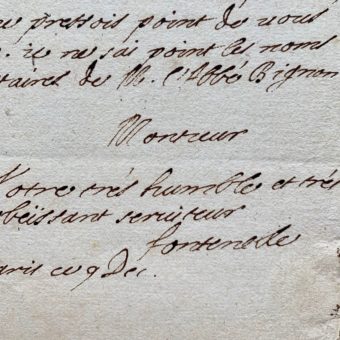 pressois point de vous
je ne sai point les noms
taires de M. l'Abbé Bignon
Monsieur
Votre trés humble et trés
obëissant serviteur
fontenelle
aris ce 9 Dec.